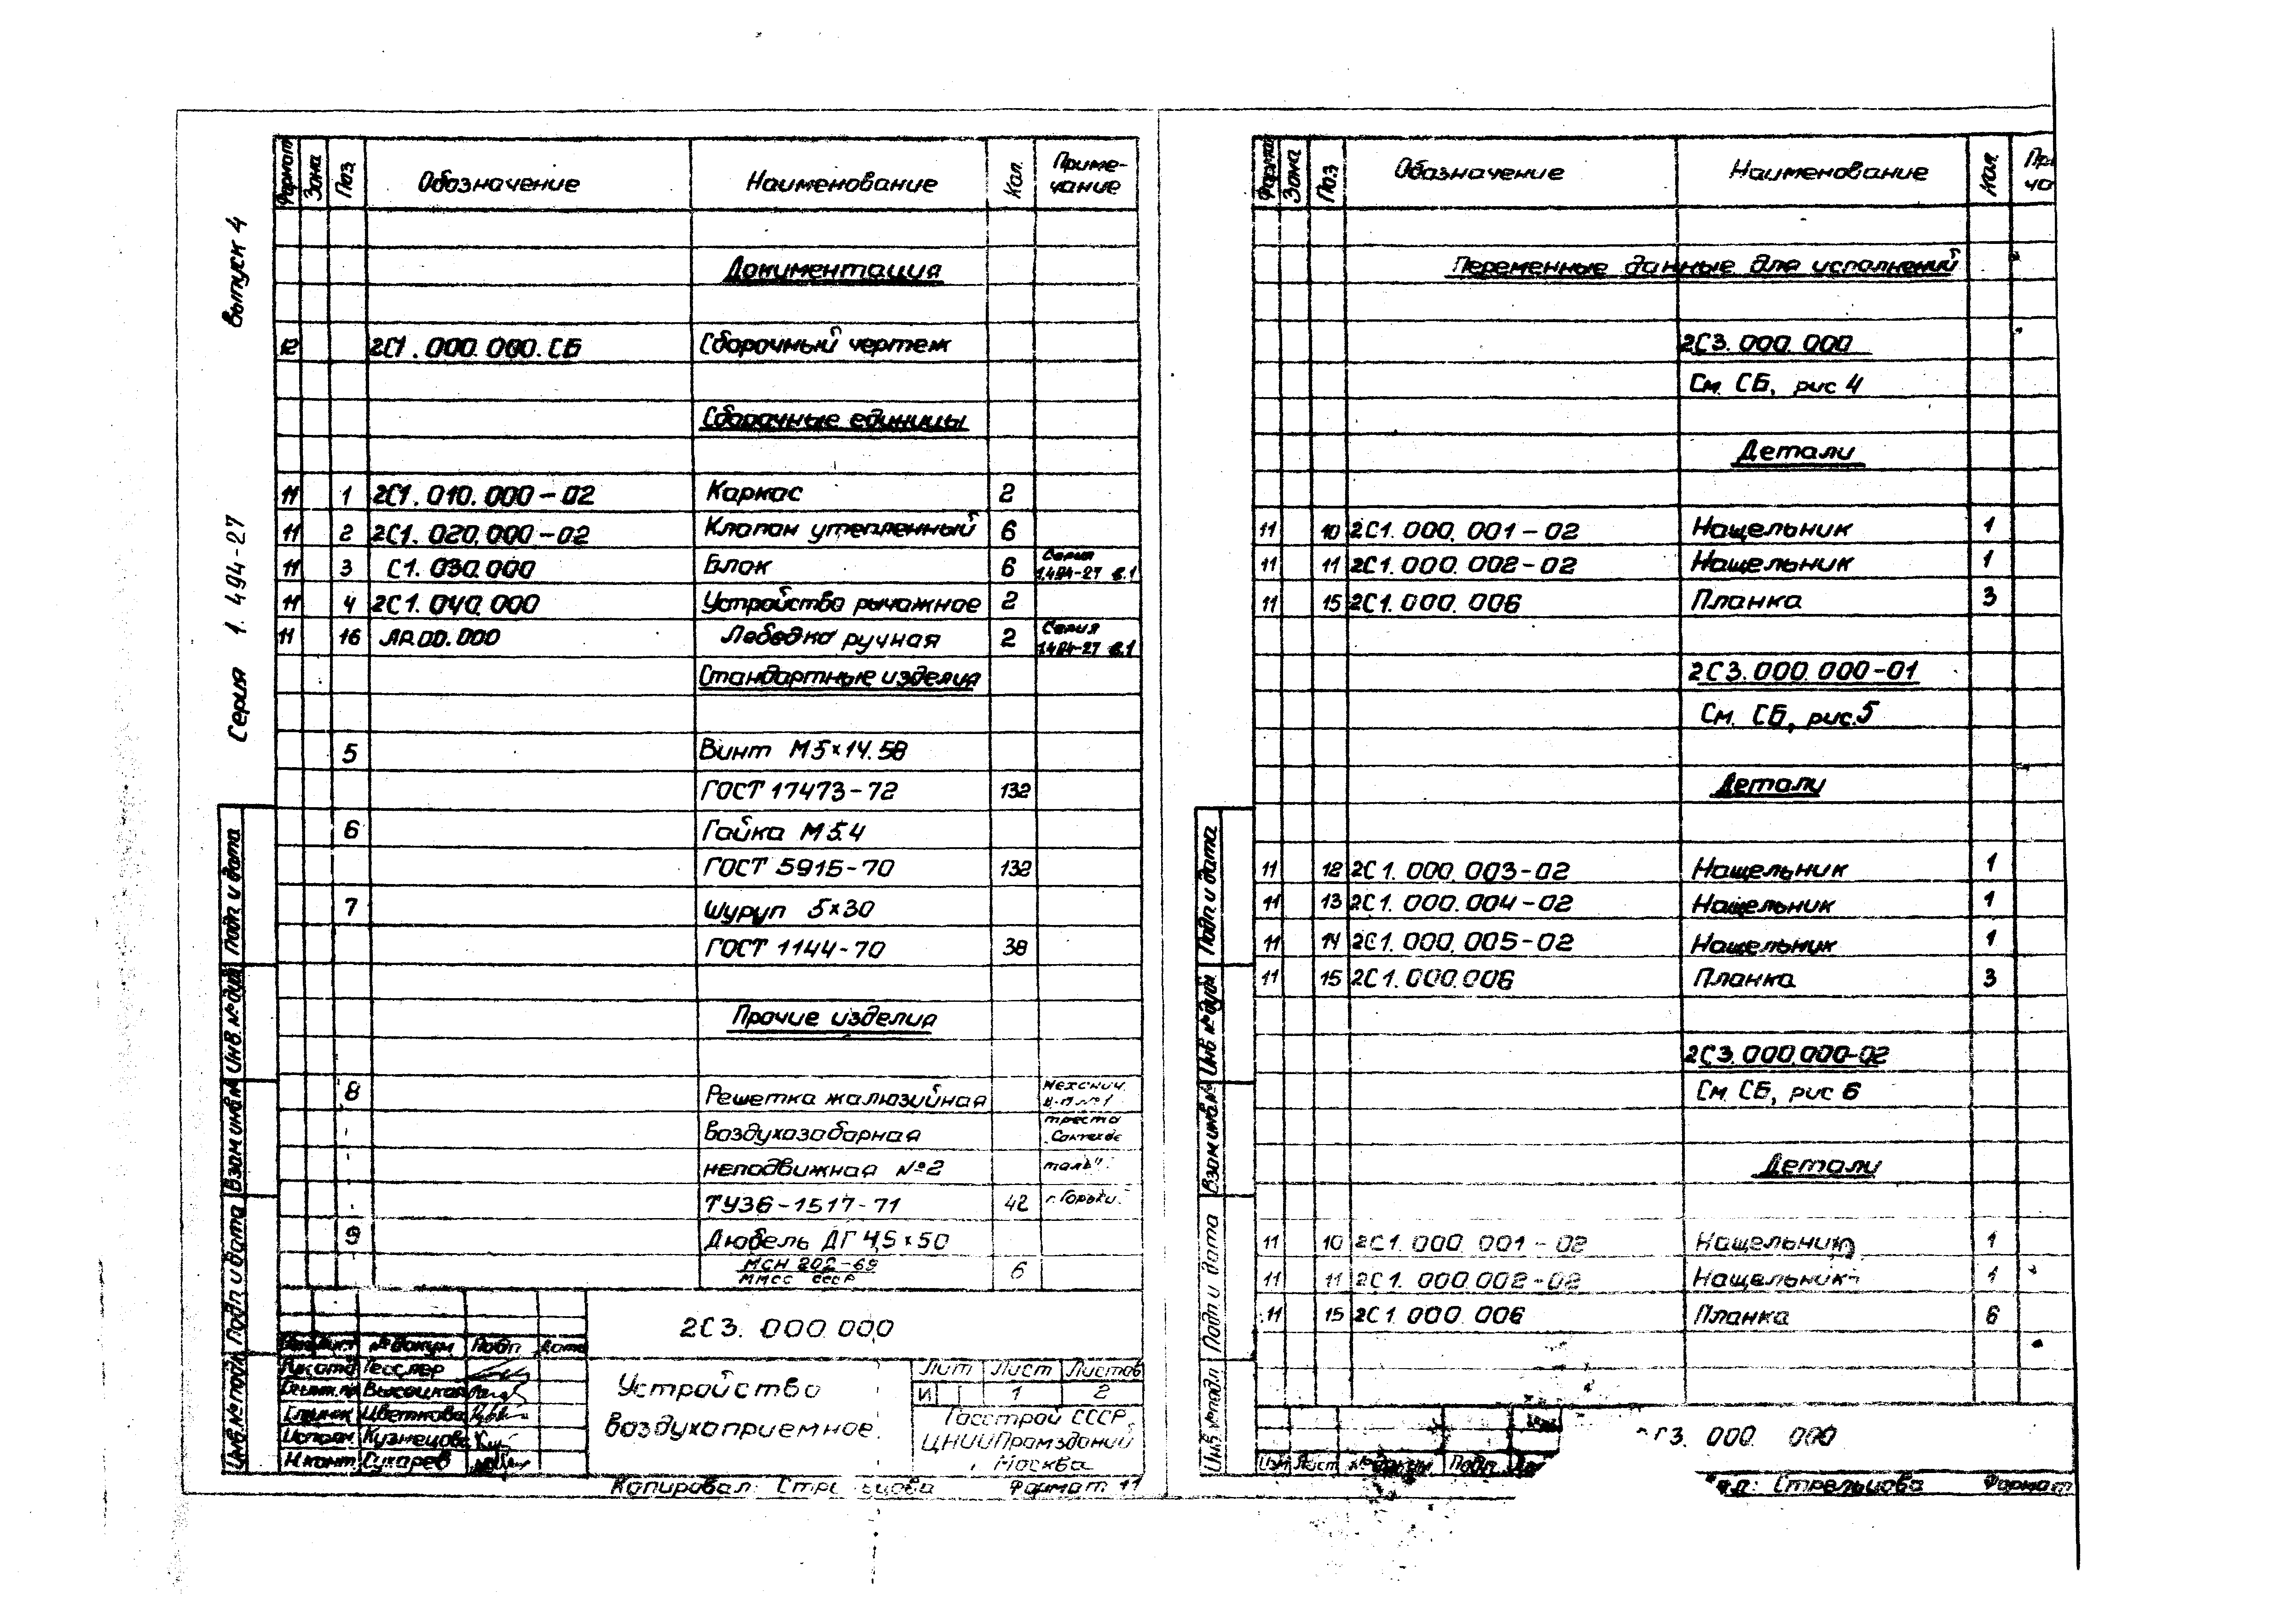 Серия 1.494-27 Выпуск 4
Формат Зона Поз Обозначение Наименование Кол. Приме-
чание
Документация
12 2С1.000.000.СБ Сборочный чертеж
Сборочные единицы
11 1 2С1.010.000-02 Каркас 2
11 2 2С1.020.000-02 Клапан утепленный 6
11 3 С1.030.000 Блок 6 Серия 1.494-27 в.1
11 4 2С1.040.000 Устройство рычажное 2
11 16 ЛР.00.000 Лебедка ручная 2 Серия 1.494-27 в.1
Стандартные изделия
5 Винт М5×14.58
ГОСТ 17473-72 132
6 Гайка М5.4
ГОСТ 5915-70 132
7 Шуруп 5×30
ГОСТ 1144-70 38
Прочие изделия
8 Решетка жалюзийная
воздухозаборная треста
неподвижная №2
ТУ36-1517-71 42
9 Дюбель ДГ 4,5×50
МСН 202-69
ММСС СССР 6
2С3.000.000
Лист № докум Подп Дата
Гесслер
Высоцкая
Цветкова
Исполн Кузнецова
Н.конт Сухарев
Устройство
воздухоприемное
Лит Лист Листов
И 1 2
Госстрой СССР
ЦНИИПромзданий
Москва
Копировал: Формат 11
Подп и дата
Инв.№ дубл
Взам инв.№
Подп и дата
Инв.№ подл
Формат Зона Поз Обозначение Наименование Кол.
Переменные данные для исполнений
2С3.000.000
См. СБ, рис 4
Детали
11 10 2С1.000.001-02 Нащельник 1
11 11 2С1.000.002-02 Нащельник 1
11 15 2С1.000.006 Планка 3
2С3.000.000-01
См. СБ, рис.5
Детали
11 12 2С1.000.003-02 Нащельник 1
11 13 2С1.000.004-02 Нащельник 1
11 14 2С1.000.005-02 Нащельник 1
11 15 2С1.000.006 Планка 3
2С3.000.000-02
См. СБ, рис 6
Детали
11 10 2С1.000.001-02 Нащельник 1
11 11 2С1.000.002-02 Нащельник 1
11 15 2С1.000.006 Планка 6
Подп и дата
Инв №дубл
Взам инв.№
Подп и дата
Инв №подл
Изм Лист № докум Подп
С3.000.000
Стрельцова Формат